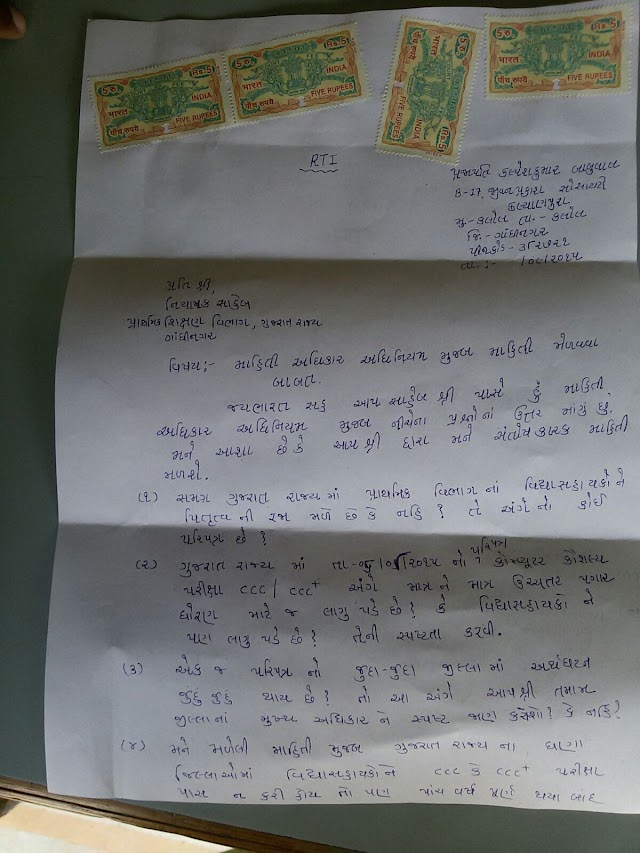 5 रु. Rs.5
भारत INDIA
पाँच रुपये FIVE RUPEES
5 रु. Rs.5
भारत INDIA
पाँच रुपये FIVE RUPEES
5 रु. Rs.5
भारत INDIA
पाँच रुपये FIVE RUPEES
5 रु. Rs.5
भारत INDIA
पाँच रुपये FIVE RUPEES
RTI
પ્રજાપતિ કલ્પેશકુમાર બાબુલાલ
B-17, જીવન પ્રકાશ સોસાયટી
કલ્યાણપુરા
મુ.- કલોલ તા.- કલોલ
જિ.- ગાંધીનગર
પીનકોડ - ૩૮૨૭૨૧
તા.:-
પ્રતિ શ્રી,
નિયામક સાહેબ
પ્રાથમિક શિક્ષણ વિભાગ, ગુજરાત રાજ્ય
ગાંધીનગર
વિષય:- માહિતી અધિકાર અધિનિયમ મુજબ માહિતી મેળવવા
બાબત.
જયભારત સહ આપ સાહેબ શ્રી પાસે હું માહિતી
અધિકાર અધિનિયમ મુજબ નીચેના પ્રશ્નોનાં ઉત્તર માગું છું.
મને આશા છે કે આપ શ્રી દ્વારા મને સંતોષકારક માહિતી
મળશે.
(૧) સમગ્ર ગુજરાત રાજ્ય માં પ્રાથમિક વિભાગ નાં વિદ્યાસહાયકો ને
પિતૃત્વ ની રજા મળે છે કે નહિ ? તે અંગે નો કોઈ
પરિપત્ર છે ?
(૨) ગુજરાત રાજ્ય માં તા- નો પરિપત્ર કોમ્પ્યુટર કૌશલ્ય
પરીક્ષા ccc / ccc+ અંગે માત્ર ને માત્ર ઉચ્ચતર પગાર
ધોરણ માટે જ લાગુ પડે છે ? કે વિદ્યાસહાયકો ને
પણ લાગુ પડે છે ? તેની સ્પષ્ટતા કરવી.
(૩) એક જ પરિપત્ર નો જુદા-જુદા જીલ્લા માં અર્થઘટન
જુદું જુદું થાય છે ? તો આ અંગે આપ શ્રી તમામ
જીલ્લાનાં મુખ્ય અધિકાર ને સ્પષ્ટ જાણ કરશો ? કે નહિ ?
(૪) મને મળેલી માહિતી મુજબ ગુજરાત રાજ્ય ના ઘણા
જિલ્લાઓમાં વિદ્યાસહાયકોને ccc કે ccc+ પરીક્ષા
પાસ ન કરી હોય તો પણ પાંચ વર્ષ પૂર્ણ થયા બાદ